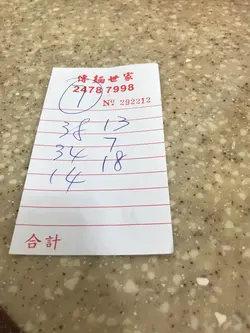 傳麵世家
2478 7998
1
Nº 292212
38 13
34 7
14 18
合計